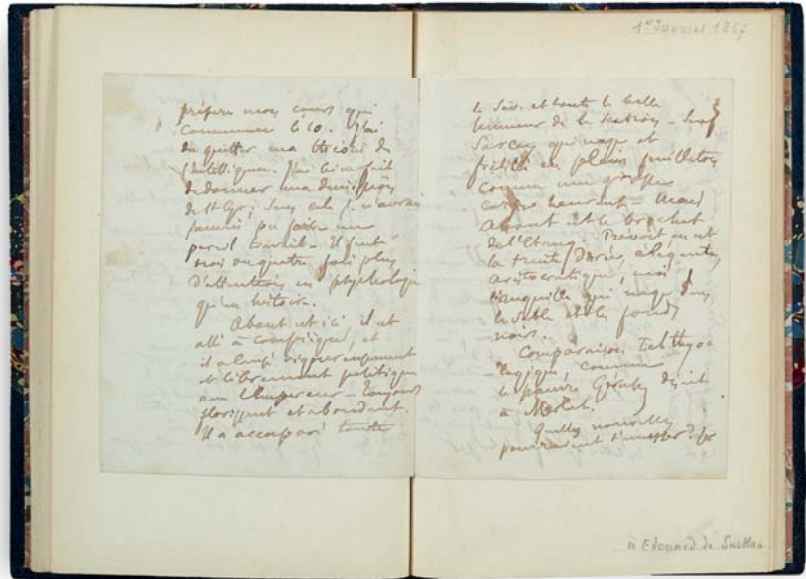 1er Janvier 1867
prépare mon cours qui
commence le 10. J'ai
du quitter ma théorie de
l'Intelligence. J'ai bien fait
de donner ma démission
de St Cyr; sans cela je n'aurais
jamais pu faire un
pareil travail. Il faut
trois ou quatre fois plus
d'attention en psychologie
qu'en histoire.
About est ici, il est
allé à Compiègne, et
il a causé vigoureusement
et librement politique
avec l'Empereur – toujours
florissant et abondant.
Il a accaparé toute
la sève et toute la belle
humeur de la section –
Sarcey qui nage et
frétille en plein feuilleton
comme une grosse
carpe – Mais
About est le brochet
de l'Etang. Prévost en est
la truite dorée, élégante,
aristocratique, moi
l'anguille qui nage dans
le sable et les fonds
noirs.
Comparaison Ichthyo-
logique, comme
le pauvre disait
à Merlet.
Quelles nouvelles
pourraient t'amuser? Je
à Edouard de Suckau